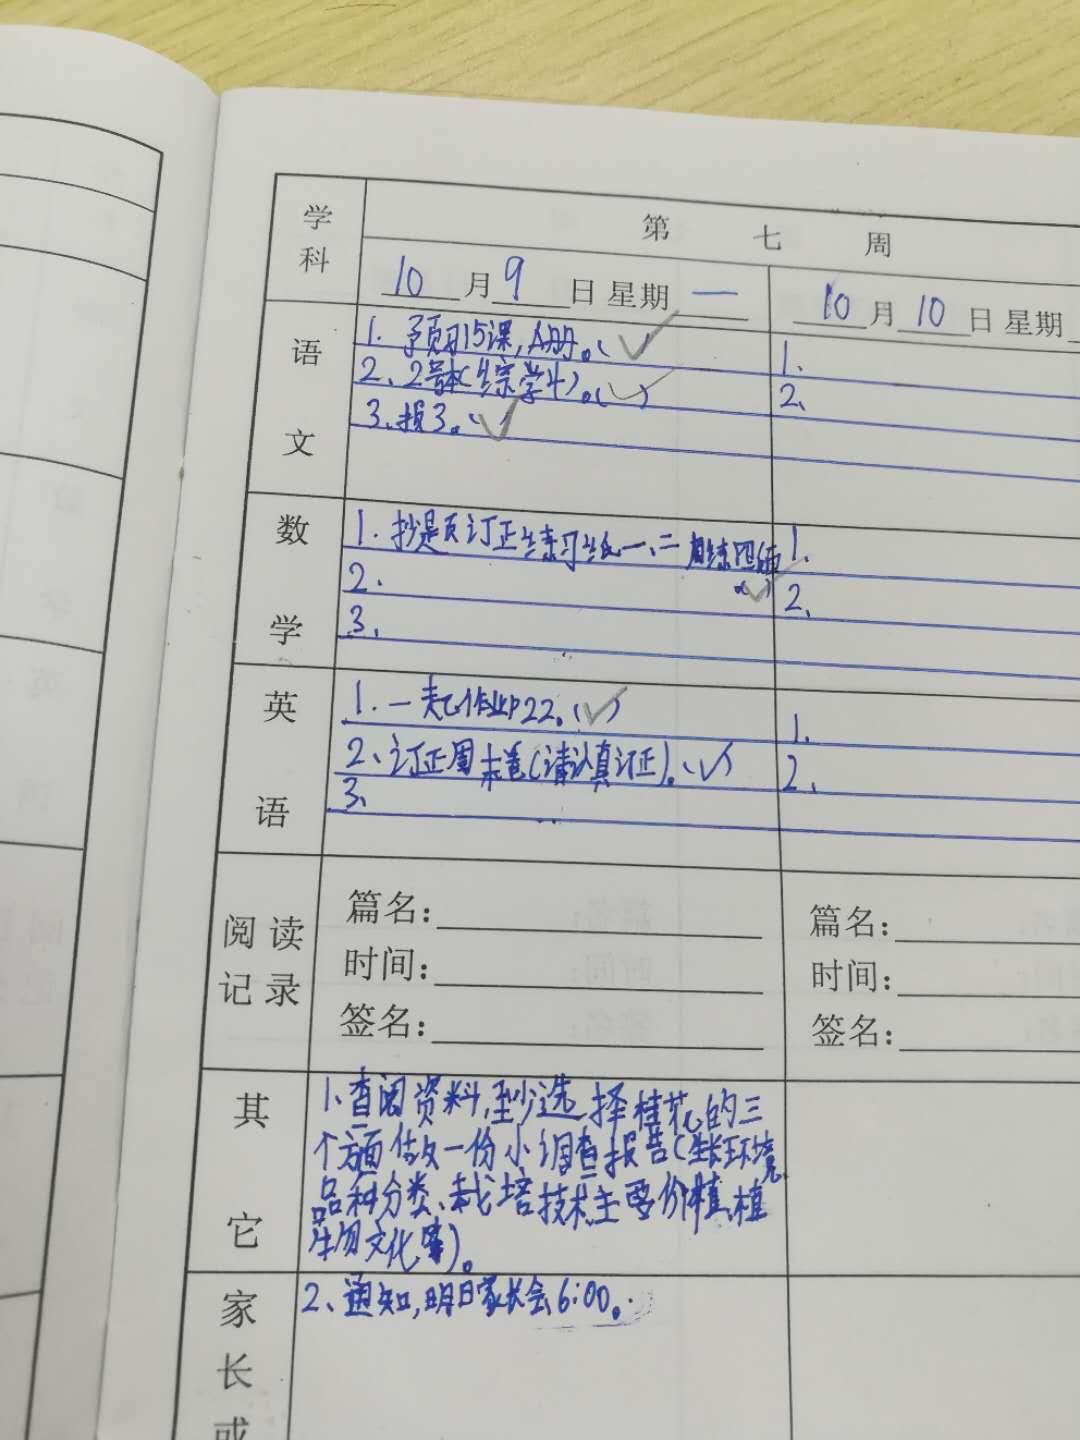 学科
第七周
10月9日星期一
10月10日星期
语文
1. 预习15课,A册。(✓)
2、2号本(综学4)。(✓)
3、报3。(✓)
1.
2、
数学
1. 抄是页订正练习纸一、二 周练四
2.
3、
1、
2、
英语
1. 一起作业P22。(✓)
2、订正周末卷(请认真订正)。(✓)
3、
1.
2、
阅读记录
篇名:
时间:
签名:
篇名:
时间:
签名:
其它
1、查阅资料,至少选择桂花的三
个方面做一份小调查报告(生长环境、
品种分类、栽培技术、主要价值、植
物文化等)。
2、通知,明日家长会6:00。
家长或